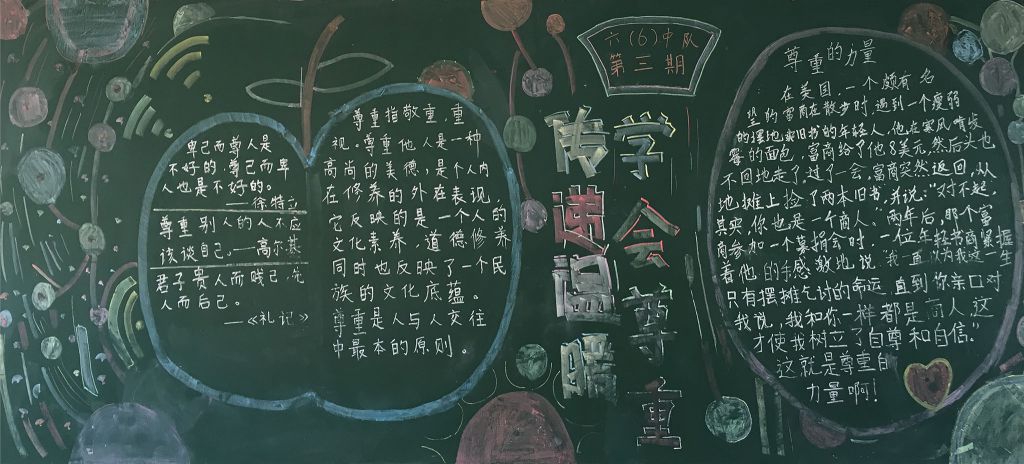 卑己而高人是
不好的,尊己而卑
人也是不好的。
——徐特立
尊重别人的人不应
该谈自己。——高尔基
君子贵人而贱己,先
人而后己。
——《礼记》
尊重指敬重,重
视。尊重他人是一种
高尚的美德,是个人内
在修养的外在表现,
它反映的是一个人的
文化素养,道德修养
同时也反映了一个民
族的文化底蕴。
尊重是人与人交往
中最本的原则。
六(6)中队
第三期
学会尊重
传递温暖
尊重的力量
在美国,一个颇有名
望的富商在散步时,遇到一个瘦弱
的摆地摊卖旧书的年轻人,他在寒风中啃发
霉的面包,富商给了他8美元,然后头也
不回地走了。过了一会,富商突然返回,从
地摊上捡了两本旧书,并说:"对不起,
其实,你也是一个商人。"两年后,那个富
商参加一个募捐会时,一位年轻书商紧握
着他的手感激地说:"我一直以为我这一生
只有摆摊乞讨的命运,直到你亲口对
我说,我和你一样都是商人,这
才使我树立了自尊和自信。"
这就是尊重的
力量啊!